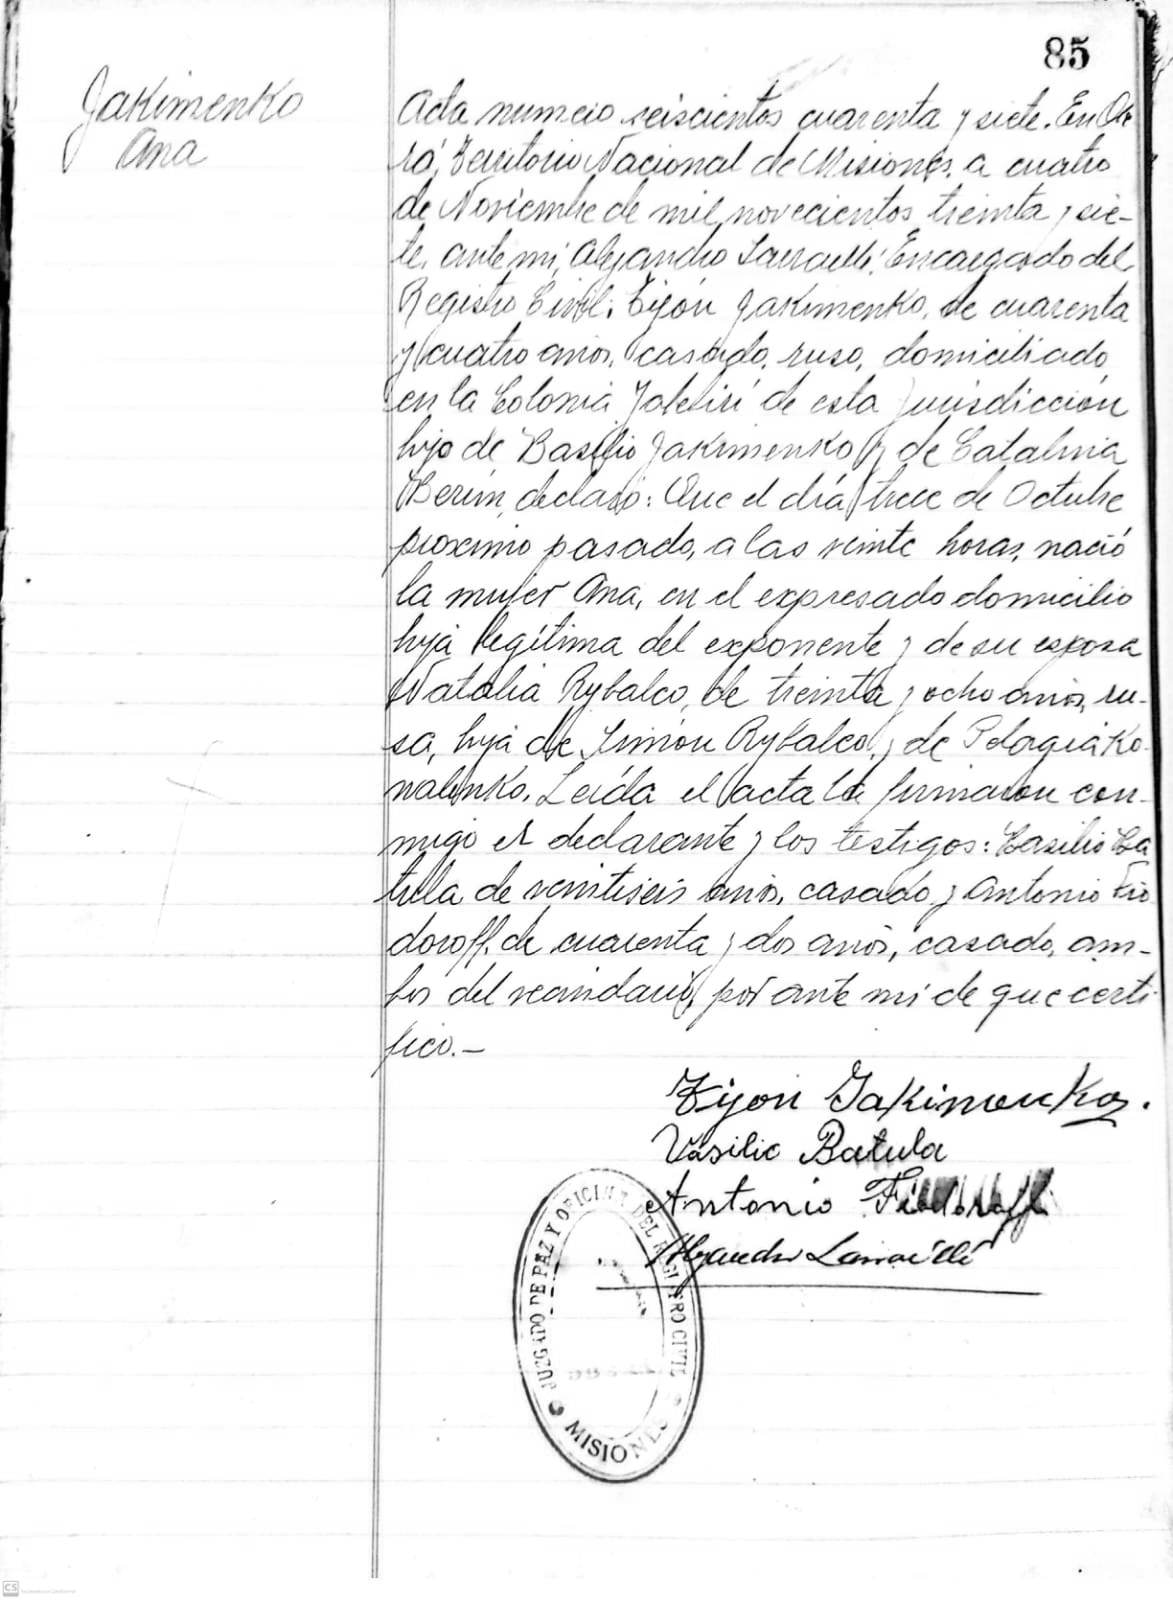 85
Jakimenko
Ana
Acta numero seiscientos cuarenta y siete. En Obe
rá, Territorio Nacional de Misiones, a cuatro
de Noviembre de mil novecientos treinta y sie-
te, ante mi, Alejandro Encargado del
Registro Civil: Tijón Jakimenko, de cuarenta
y cuatro años, casado, ruso, domiciliado
en la Colonia de esta jurisdicción
hijo de Basilio Jakimenko y de Catalina
declaró: Que el día trece de Octubre
proximo pasado, a las veinte horas, nació
la mujer Ana, en el expresado domicilio
hija legítima del exponente y de su esposa
Natalia Rybalco, de treinta y ocho años, ru-
sa, hija de Simón Rybalco, y de Pelagia Ko-
nalenko. Leída el acta la firmaron con-
migo el declarante y los testigos: Basilio Ba
tula de veintiseis años, casado y Antonio Fio
doroff, de cuarenta y dos años, casado, am-
bos del vecindario, por ante mi de que certi
fico.-
Tijon Jakimenko.
Vasilio Batula
Antonio Fiodoroff
Alejandro
JUZGADO DE PAZ Y OFICINA DEL REGISTRO CIVIL
MISIONES
CS